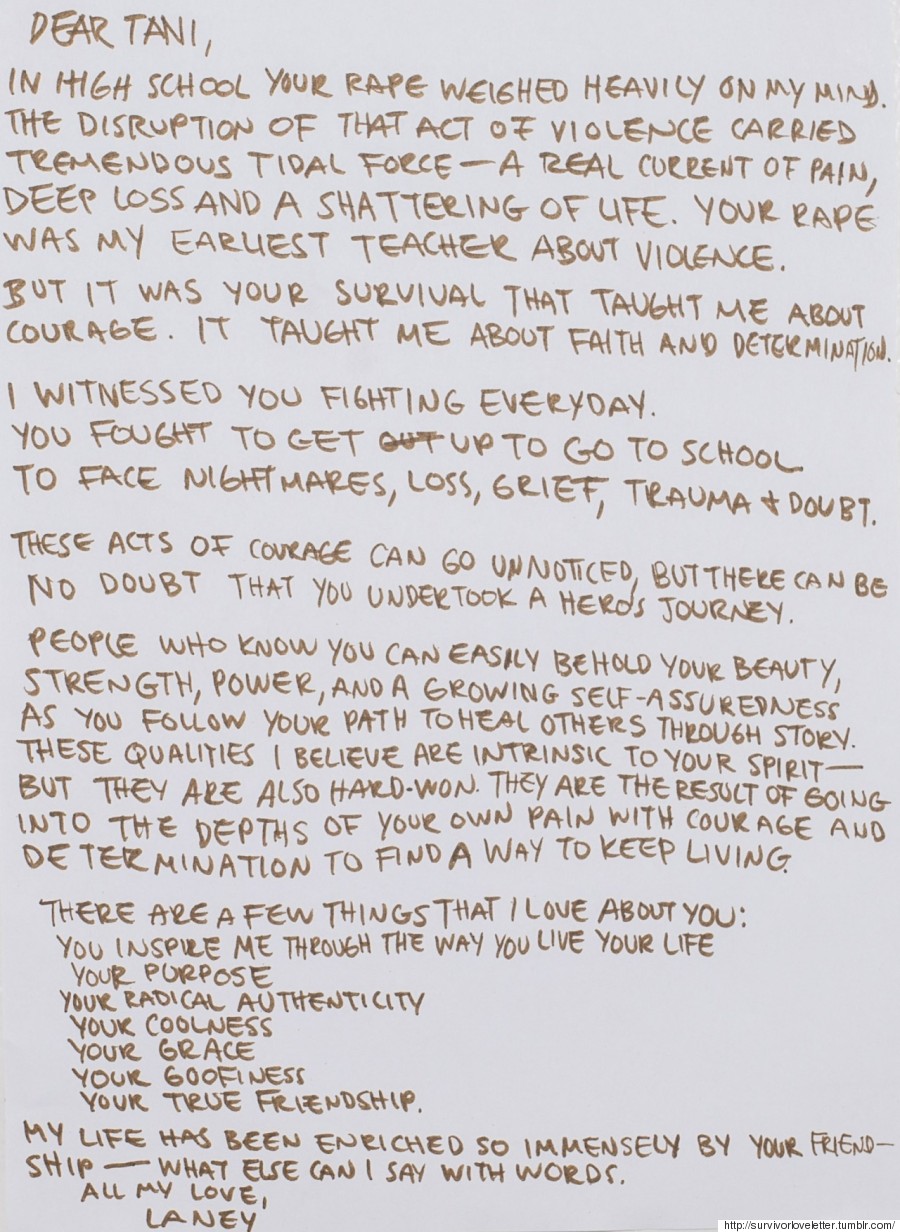 DEAR TANI,
IN HIGH SCHOOL YOUR RAPE WEIGHED HEAVILY ON MY MIND.
THE DISRUPTION OF THAT ACT OF VIOLENCE CARRIED
TREMENDOUS TIDAL FORCE — A REAL CURRENT OF PAIN,
DEEP LOSS AND A SHATTERING OF LIFE. YOUR RAPE
WAS MY EARLIEST TEACHER ABOUT VIOLENCE.
BUT IT WAS YOUR SURVIVAL THAT TAUGHT ME ABOUT
COURAGE. IT TAUGHT ME ABOUT FAITH AND DETERMINATION.
I WITNESSED YOU FIGHTING EVERYDAY.
YOU FOUGHT TO GET OUT UP TO GO TO SCHOOL
TO FACE NIGHTMARES, LOSS, GRIEF, TRAUMA + DOUBT.
THESE ACTS OF COURAGE CAN GO UNNOTICED, BUT THERE CAN BE
NO DOUBT THAT YOU UNDERTOOK A HERO'S JOURNEY.
PEOPLE WHO KNOW YOU CAN EASILY BEHOLD YOUR BEAUTY,
STRENGTH, POWER, AND A GROWING SELF-ASSUREDNESS
AS YOU FOLLOW YOUR PATH TO HEAL OTHERS THROUGH STORY.
THESE QUALITIES I BELIEVE ARE INTRINSIC TO YOUR SPIRIT —
BUT THEY ARE ALSO HARD-WON. THEY ARE THE RESULT OF GOING
INTO THE DEPTHS OF YOUR OWN PAIN WITH COURAGE AND
DETERMINATION TO FIND A WAY TO KEEP LIVING.
THERE ARE A FEW THINGS THAT I LOVE ABOUT YOU:
YOU INSPIRE ME THROUGH THE WAY YOU LIVE YOUR LIFE
YOUR PURPOSE
YOUR RADICAL AUTHENTICITY
YOUR COOLNESS
YOUR GRACE
YOUR GOOFINESS
YOUR TRUE FRIENDSHIP.
MY LIFE HAS BEEN ENRICHED SO IMMENSELY BY YOUR FRIEND—
SHIP — WHAT ELSE CAN I SAY WITH WORDS.
ALL MY LOVE,
LANEY
http://survivorloveletter.tumblr.com/